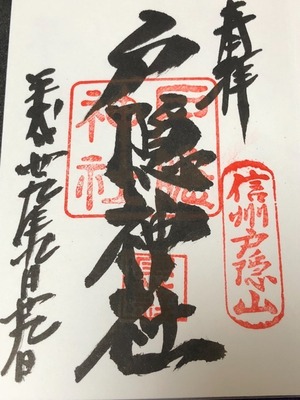 奉拝
信州戸隠山
戸隠神社
平成廿九年九月廿九日